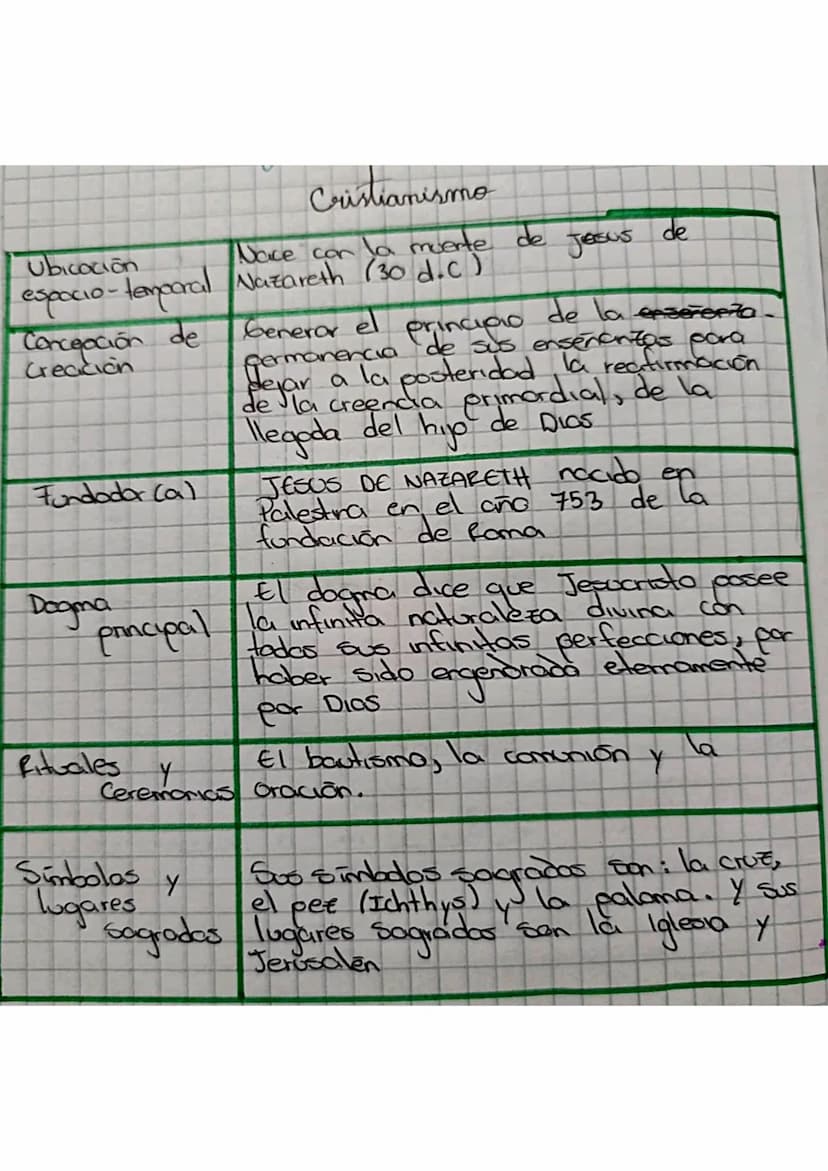 Cristianismo
Ubicación
espacio-temporal
Nace con la muerte de Jesus de
Nazareth (30 d.C)
Concepción de
Creación
Generar el principio de la enseñenza-
permanencia de sus enseñanzas para
dejar a la posteridad, la reafirmación
de la creencia primordial, de la
llegada del hijo de Dios
Fundador(a)
JESUS DE NAZARETH nacido en
Palestina en el año 753 de la
fundación de Roma
Dogma
principal
El dogma dice que Jesucristo posee
la infinita naturaleza divina con
todas sus infinitas perfecciones, por
haber sido engendrado eternamente
por Dios
Rituales y
Ceremonias
El bautismo, la comunión y la
oración.
Símbolos y
lugares
sagrados
Sus símbolos sagrados son: la cruz,
el pez (Ichthys) y la paloma. Y sus
lugares sagrados son la Iglesia y
Jerusalén